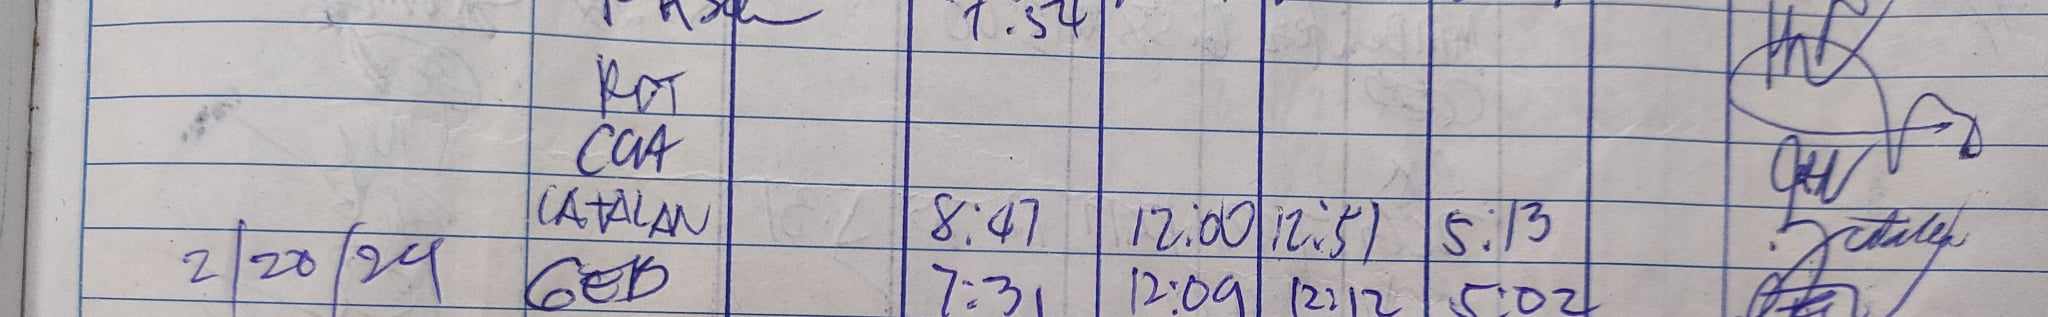 7:54
ROT
CGA
CATALAN 8:47 12:00 12:51 5:13
2/20/24 GED 7:31 12:09 12:12 5:02